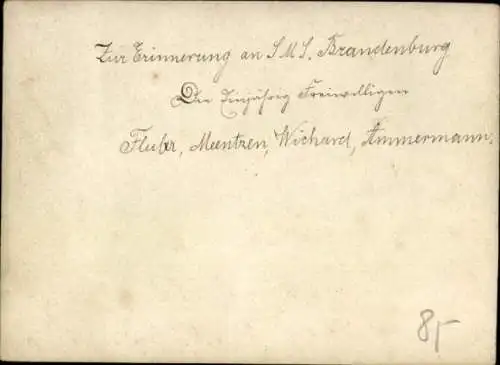 Zur Erinnerung an S.M.S. Brandenburg
Die Einjährig Freiwilligen
Meentzen, Wichard, Ammermann.
8,-